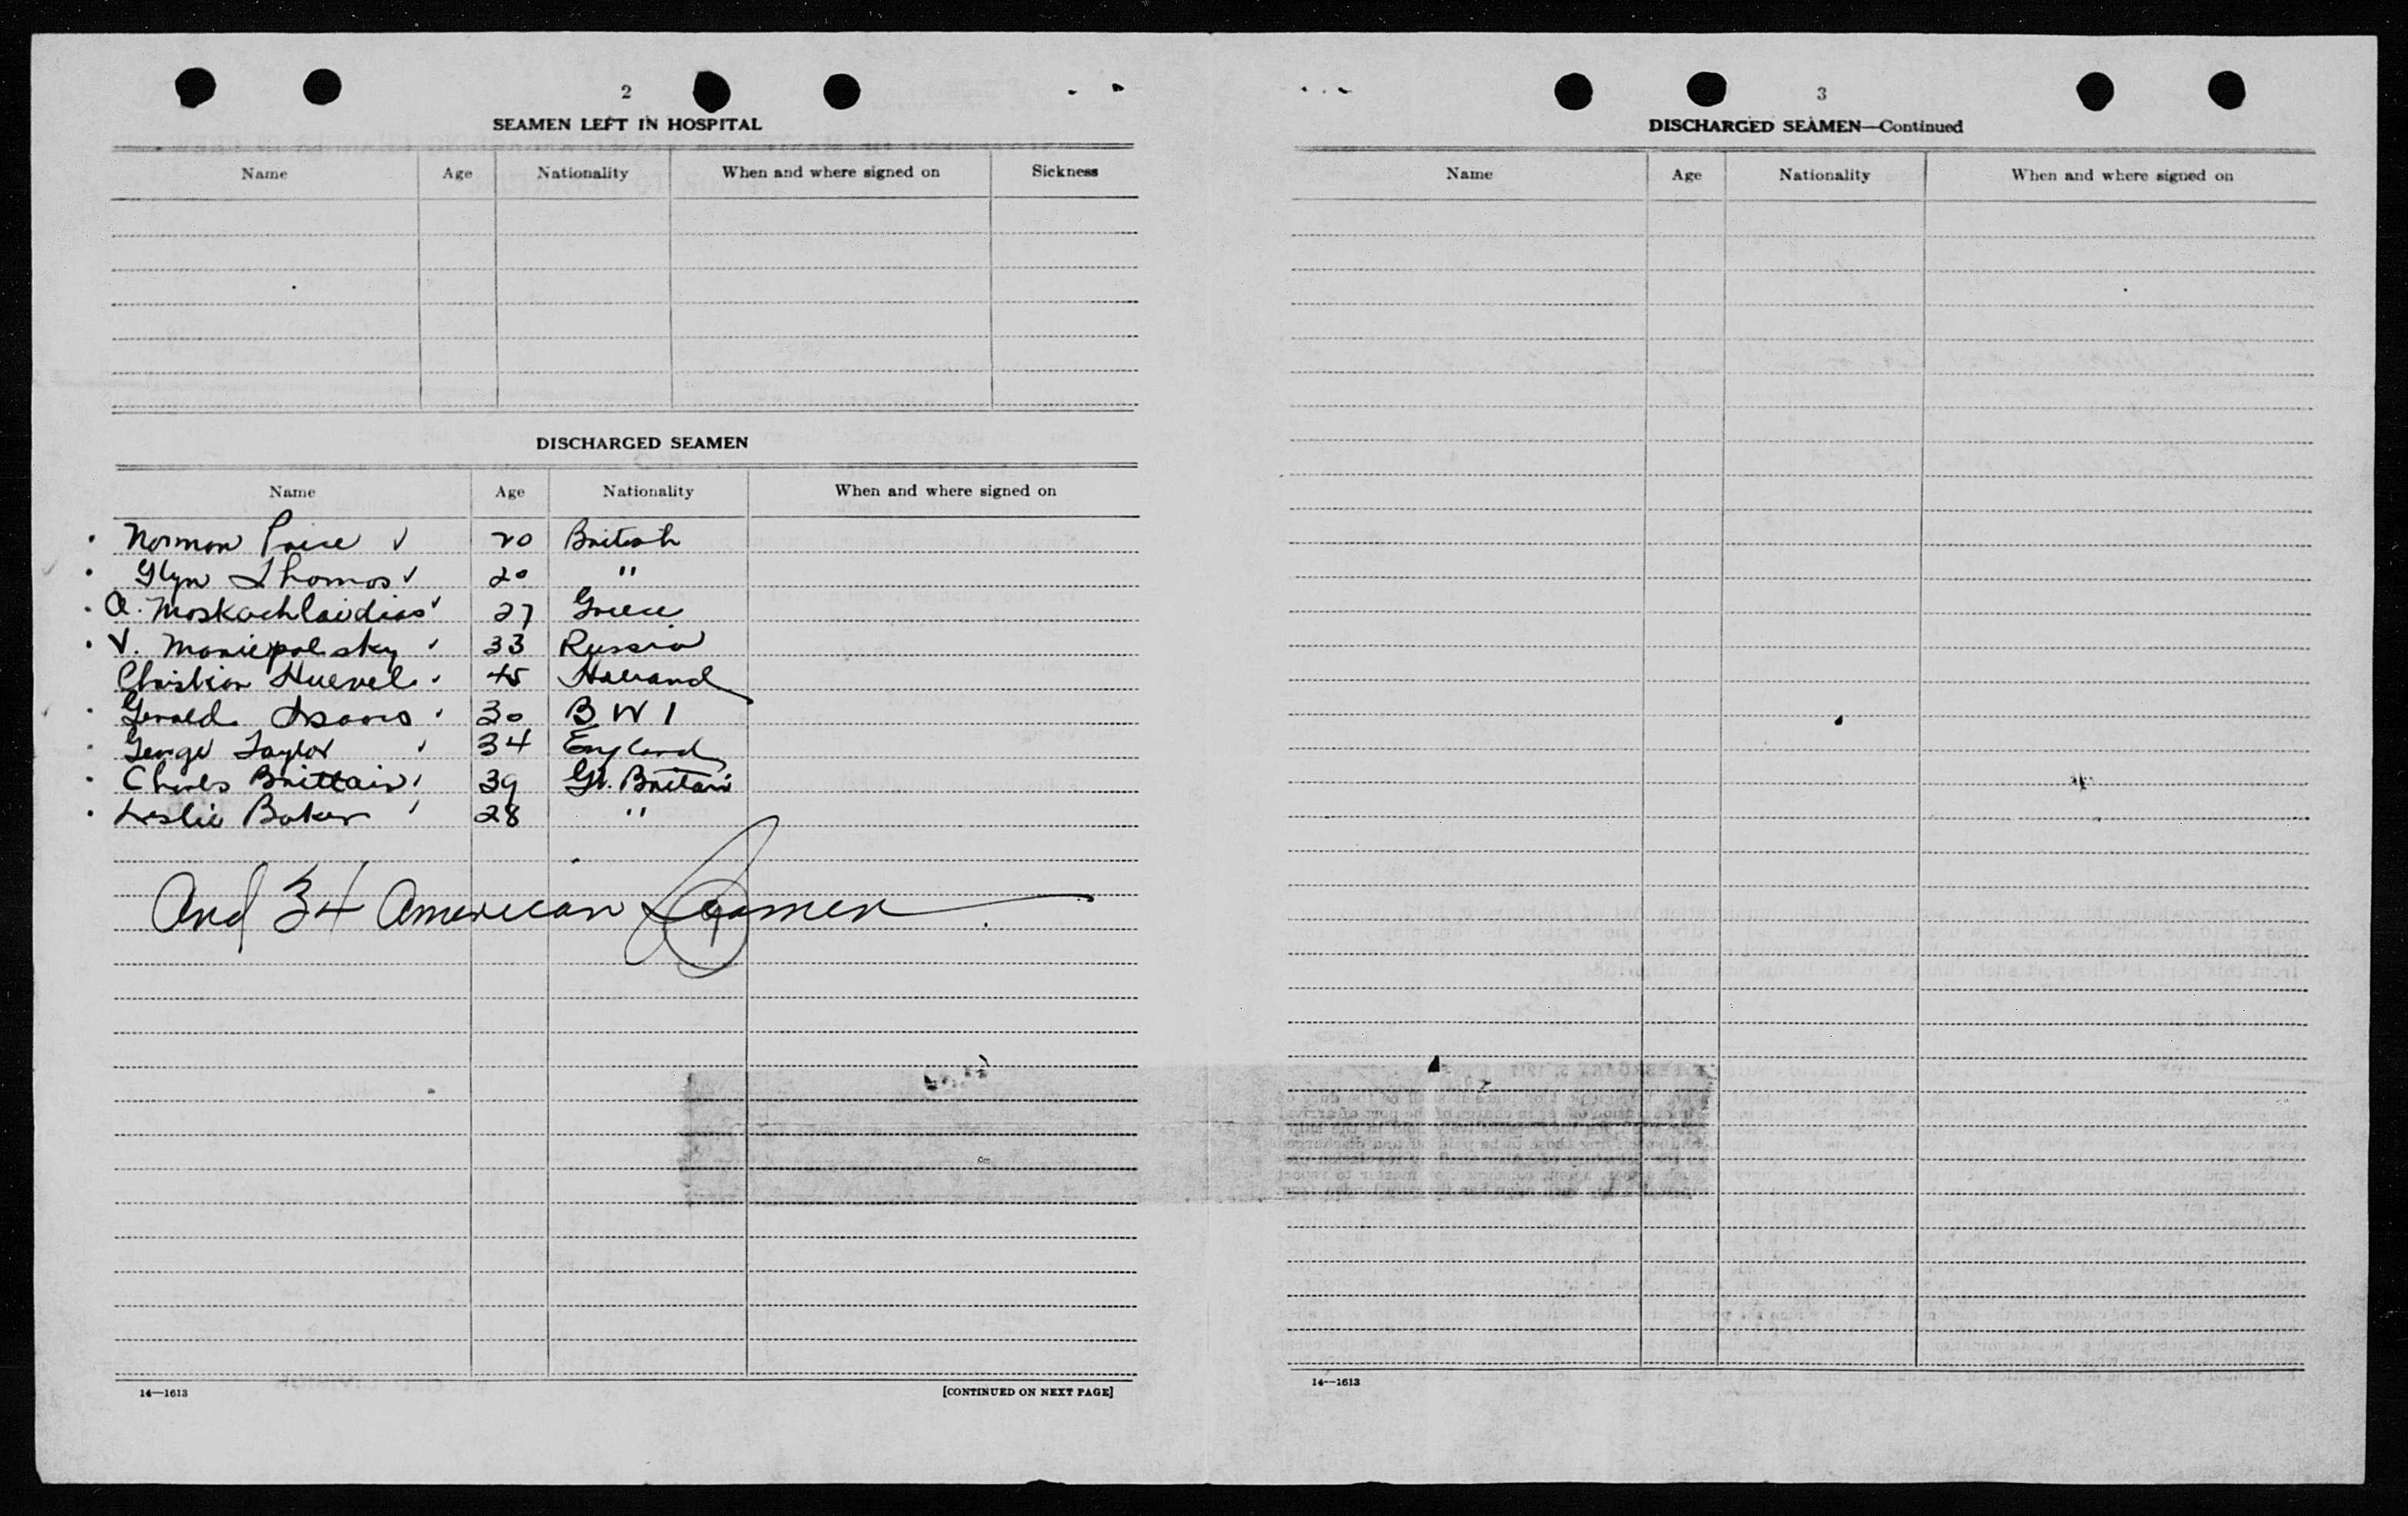 2
SEAMEN LEFT IN HOSPITAL
Name Age Nationality When and where signed on Sickness
DISCHARGED SEAMEN
Name Age Nationality When and where signed on
Norman Price ✓ 20 British
Glyn Thomas ✓ 20 "
A. Moskachlaidias ✓ 27 Greece
V. Moniepolsky 33 Russia
Christian Huevel 45 Holland
Gerald Isaacs 30 B W I
George Taylor 34 England
Charles Brittain 39 Gt. Britain
Leslie Baker 28 "
And 34 American Seamen
9
14—1613 [CONTINUED ON NEXT PAGE]
3
DISCHARGED SEAMEN—Continued
Name Age Nationality When and where signed on
14—1613